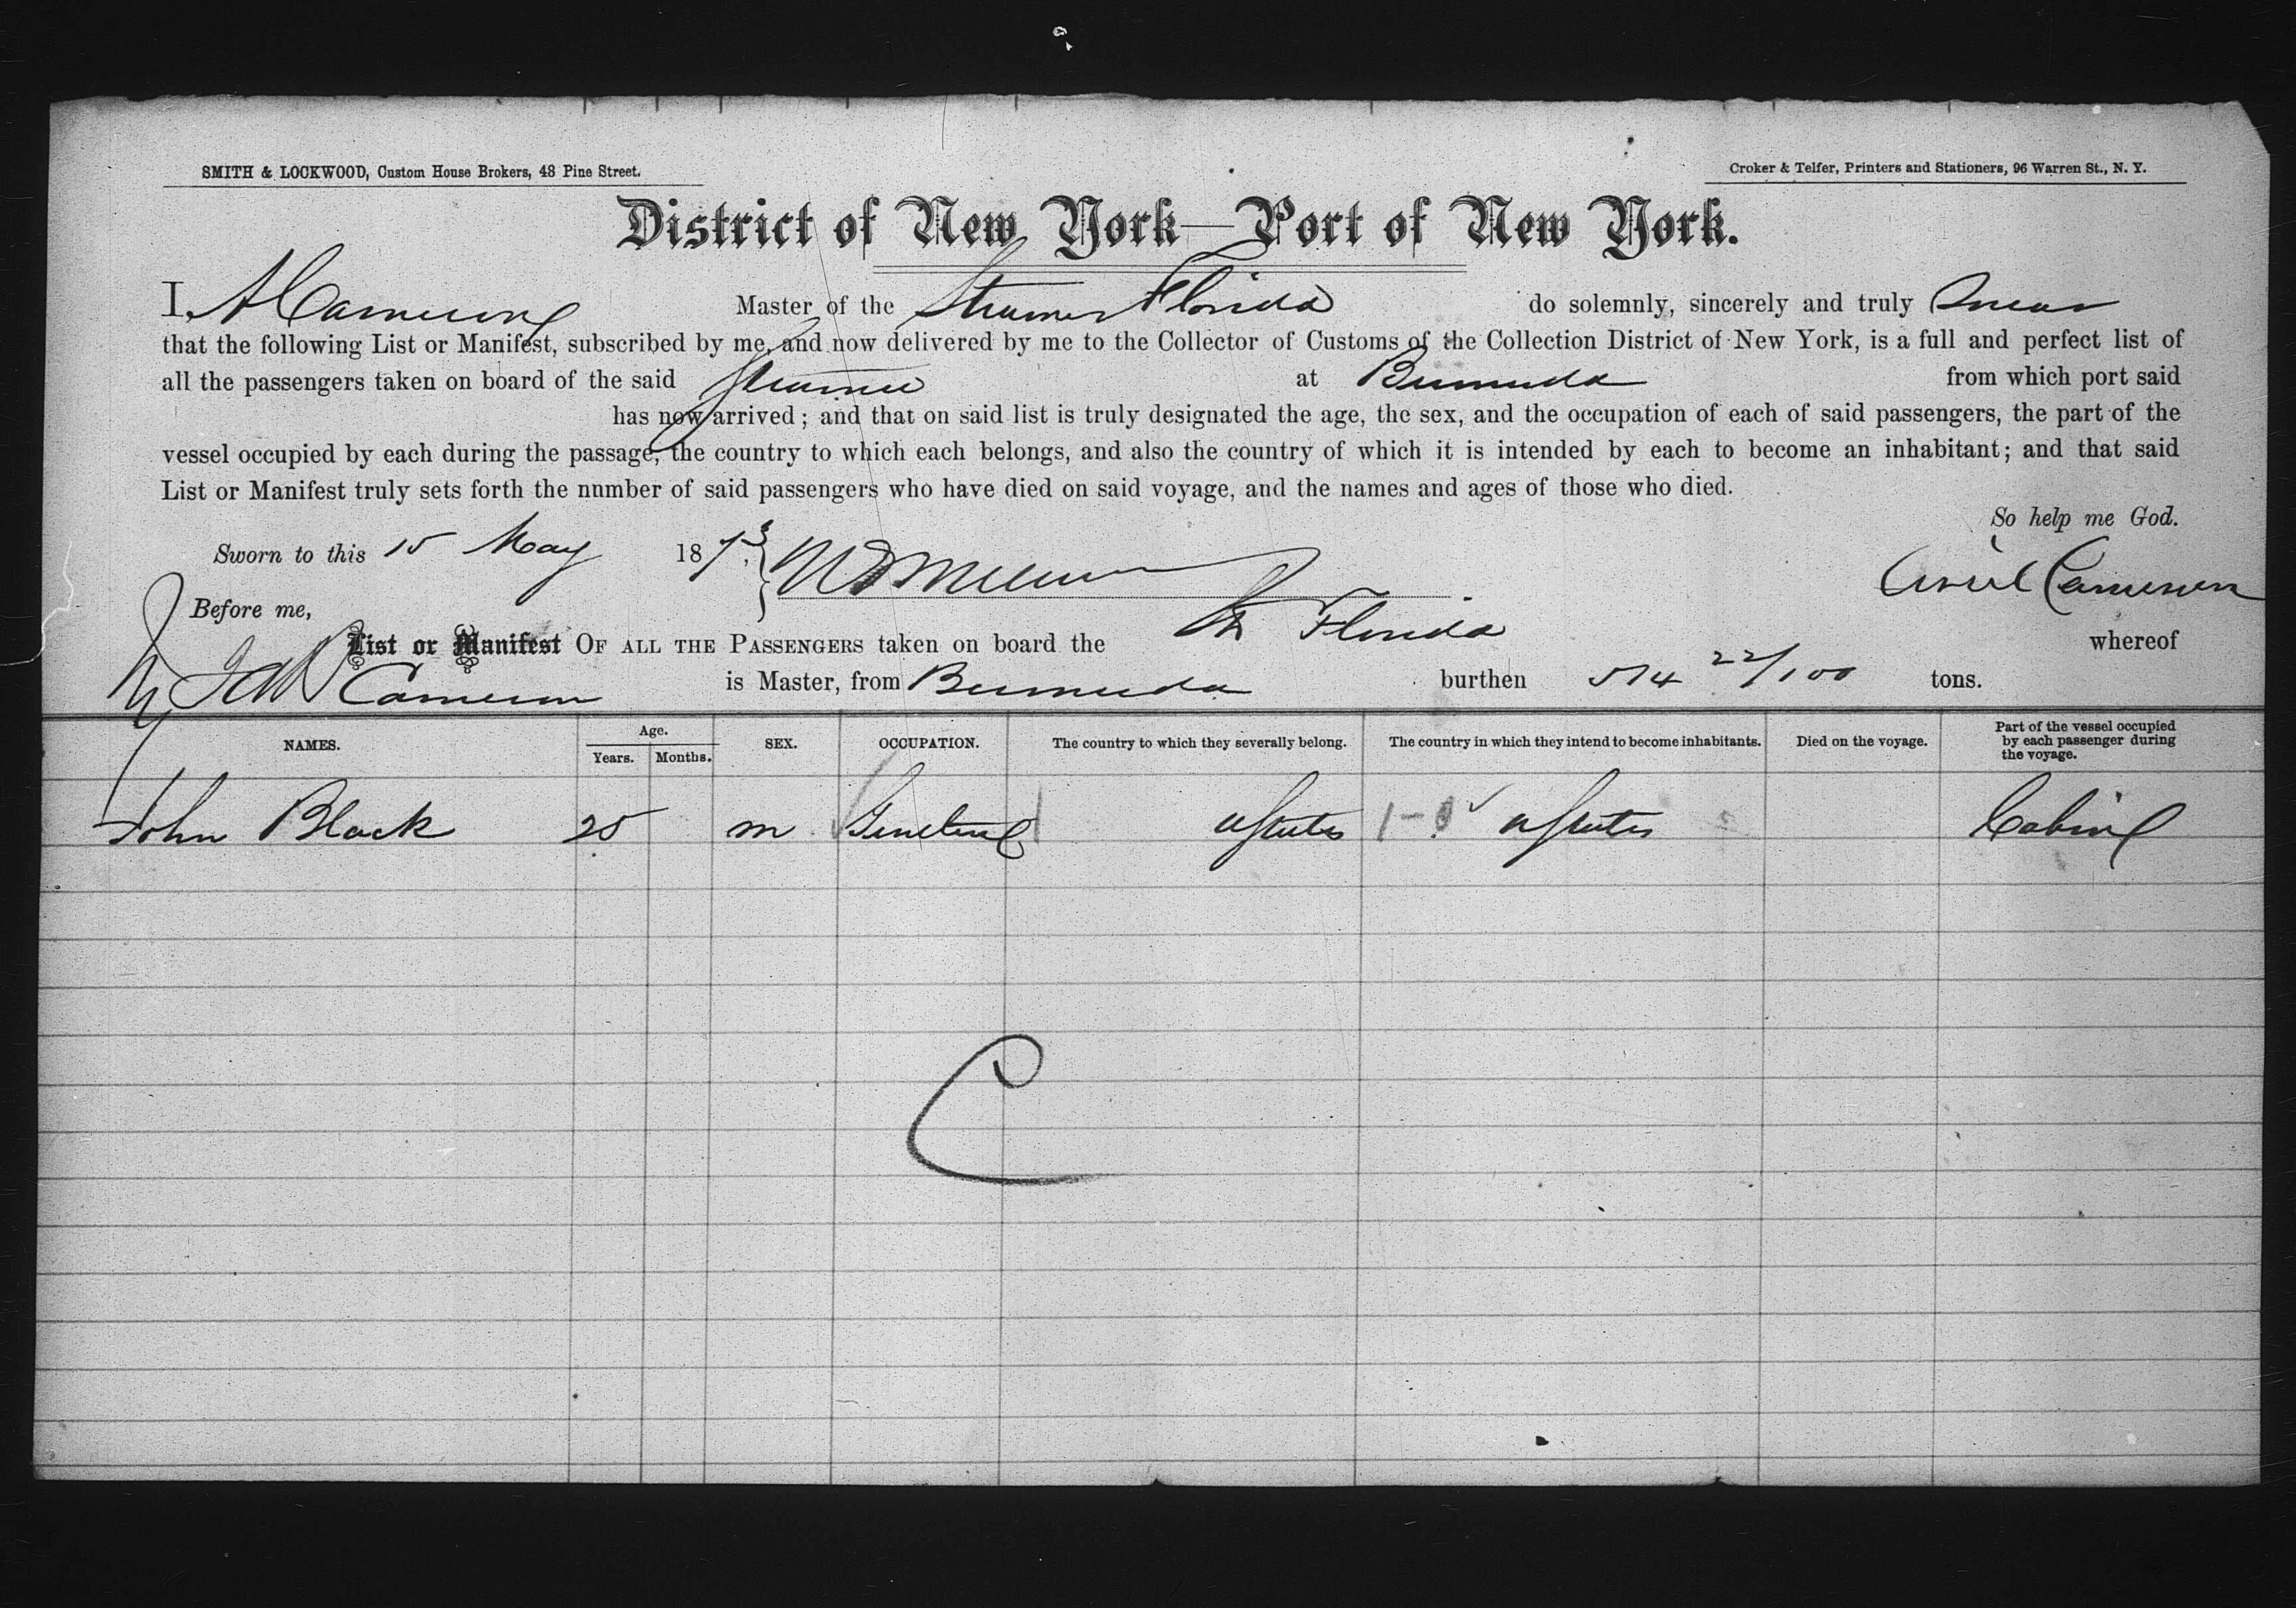 SMITH & LOCKWOOD, Custom House Brokers, 48 Pine Street.
Croker & Telfer, Printers and Stationers, 96 Warren St., N. Y.
District of New York—Port of New York.
I, A Cameron Master of the Steamer Florida do solemnly, sincerely and truly Swear
that the following List or Manifest, subscribed by me, and now delivered by me to the Collector of Customs of the Collection District of New York, is a full and perfect list of
all the passengers taken on board of the said Steamer at Bermuda from which port said
has now arrived; and that on said list is truly designated the age, the sex, and the occupation of each of said passengers, the part of the
vessel occupied by each during the passage, the country to which each belongs, and also the country of which it is intended by each to become an inhabitant; and that said
List or Manifest truly sets forth the nnmber of said passengers who have died on said voyage, and the names and ages of those who died.
So help me God.
Sworn to this 15 May 1873
Cameron
Before me,
List or Manifest OF ALL THE PASSENGERS taken on board the Str Florida whereof
Cameron is Master, from Bermuda burthen 574 22/100 tons.
NAMES. Age. Years. Months. SEX. OCCUPATION. The country to which they severally belong. The country in which they intend to become inhabitants. Died on the voyage. Part of the vessel occupied by each passenger during the voyage.
John Black 25 m Gentleml U States U States Cabin
C